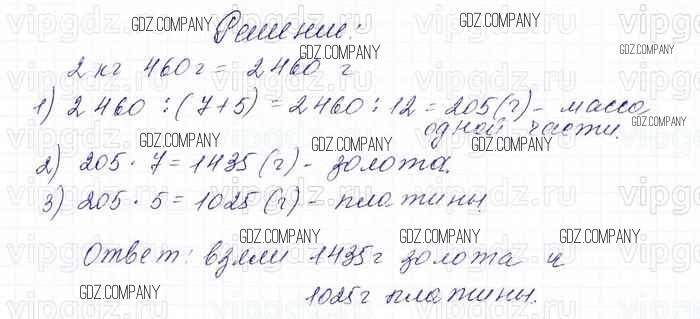 Решение:
2 кг 460 г = 2460 г
1) 2460 : (7+5) = 2460 : 12 = 205(г) - масса
одной части.
2) 205 · 7 = 1435 (г) - золота.
3) 205 · 5 = 1025 (г) - платины
Ответ: взяли 1435г золота и
1025г платины.
GDZ.COMPANY
GDZ.COMPANY
GDZ.COMPANY
GDZ.COMPANY
GDZ.COMPANY
GDZ.COMPANY
GDZ.COMPANY
GDZ.COMPANY
GDZ.COMPANY
GDZ.COMPANY
GDZ.COMPANY
GDZ.COMPANY
GDZ.COMPANY
vipgdz.ru